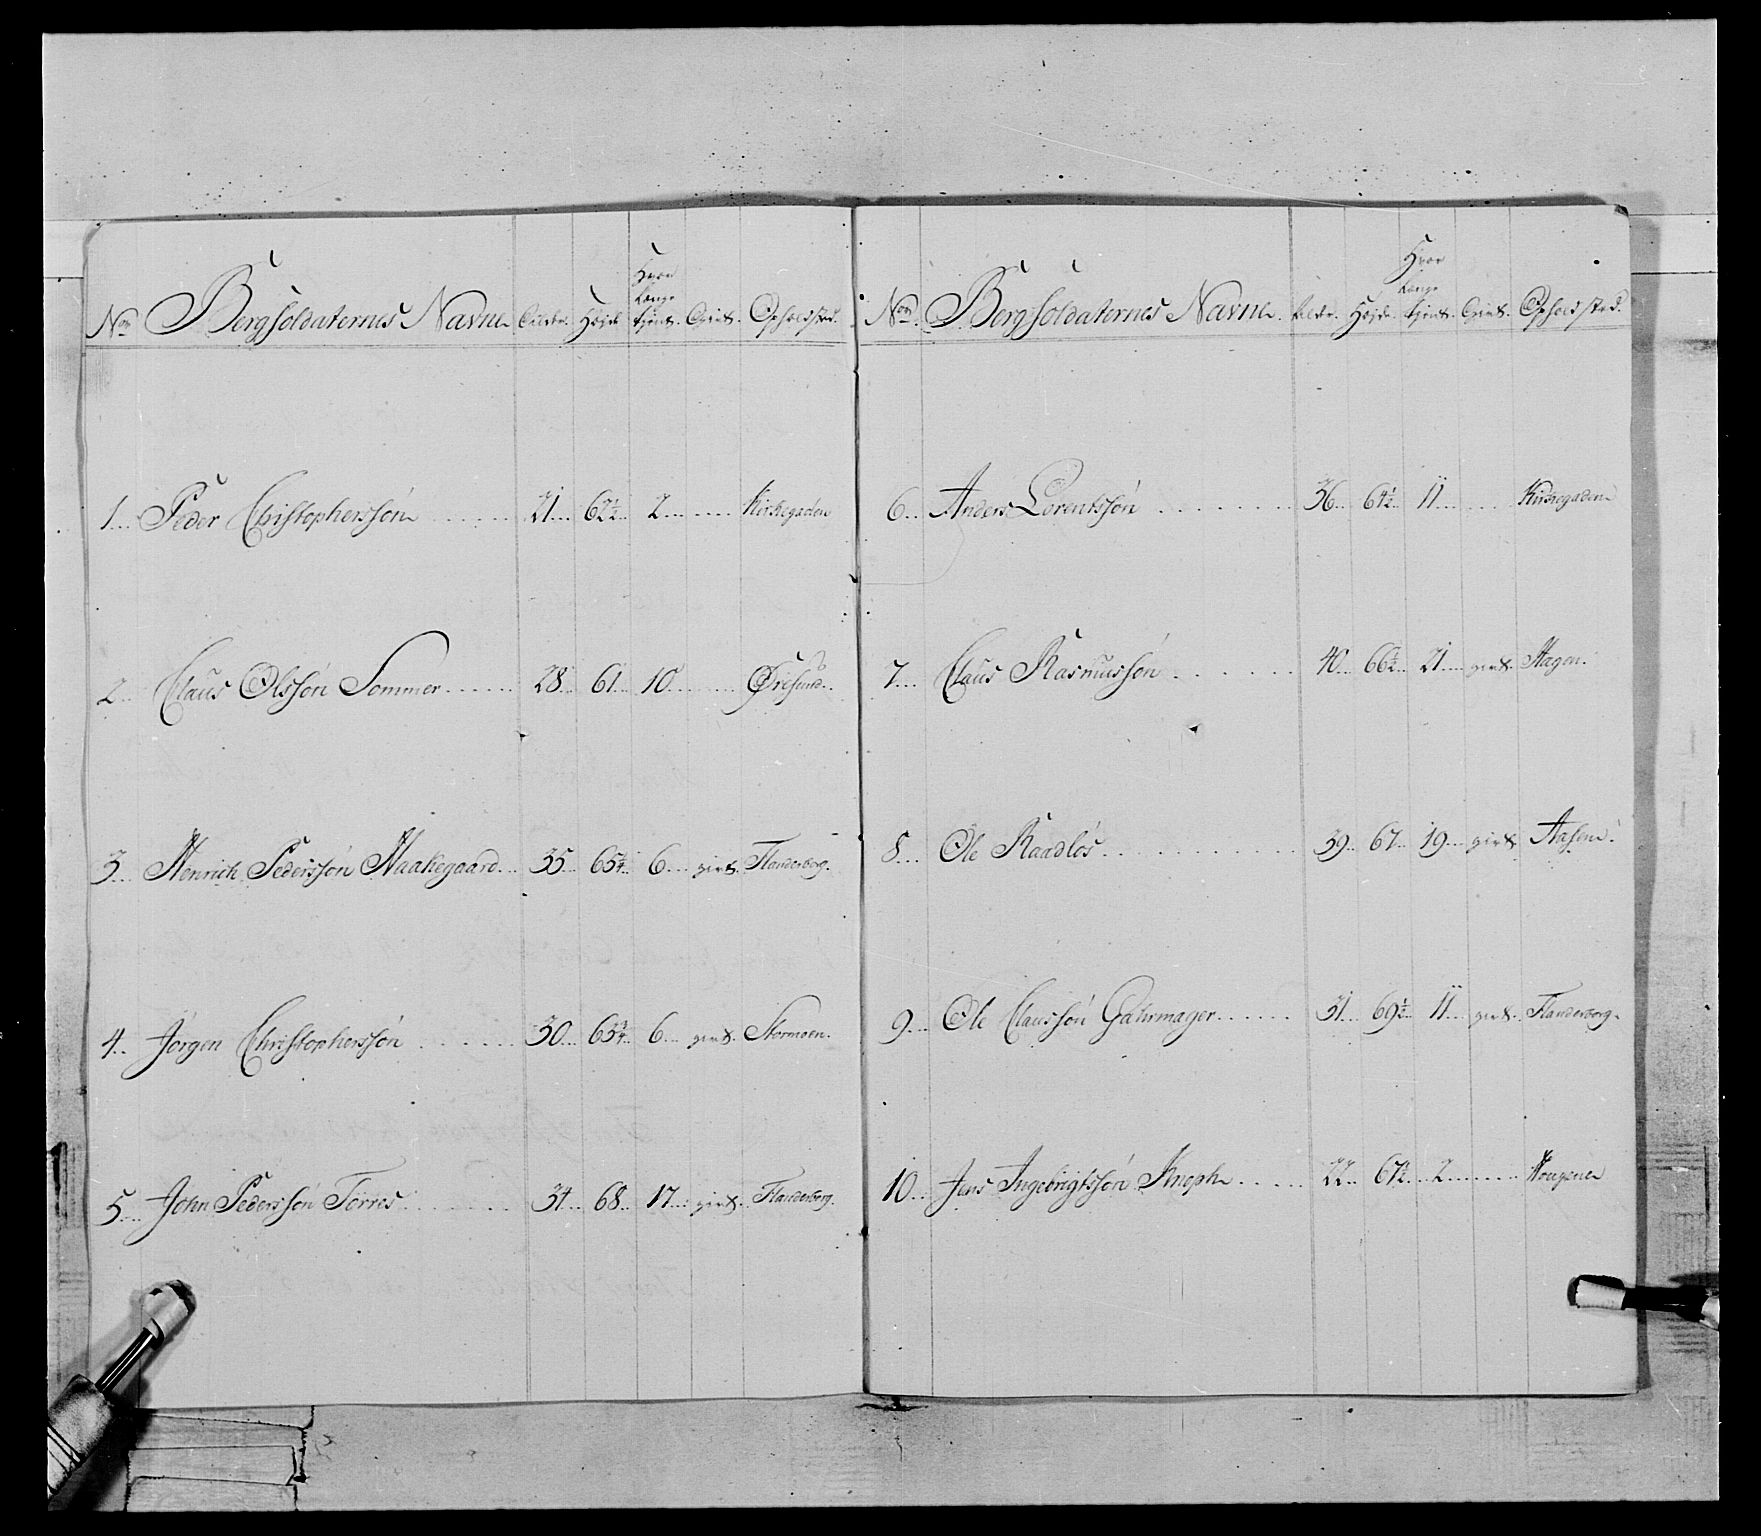 Hvor
Længe
No Bergsoldaternes Navne Alder. Høyde tjent. Givt. Opholdsted.
1... Peder Christophersøn ...... 21.... 62½... 2........ Kirkegaden
2... Claus Olssøn Sommer ...... 28... 61... 10........ Øresund..
3... Henrich Pederssøn Haakegaard... 35... 65¼.. 6.... givt. Flanderborg.
4... Jørgen Christopherssøn ...... 30... 63¾.. 6.... givt. Stormoen.
5... John Pederssøn Torres ...... 34... 68... 17... givt. Flanderborg.
Hvor
Længe
No Bergsoldaternes Navne. Alder. Høyde. tjent. Givt. Opholdsted.
6... Anders Lorentssøn ........ 36... 64½... 11........ Kirkegaden
7... Claus Rasmussøn ....... 40... 66½... 21.... givt. Hagen.
8... Ole Raadløs .......... 39... 67... 19... givt. Aasen.
9... Ole Claussøn Gahrmager ...... 31... 69½... 11... givt. Flanderborg.
10... Jens Ingebrigtssøn Knoph ..... 22... 67½... 2........ Hougene